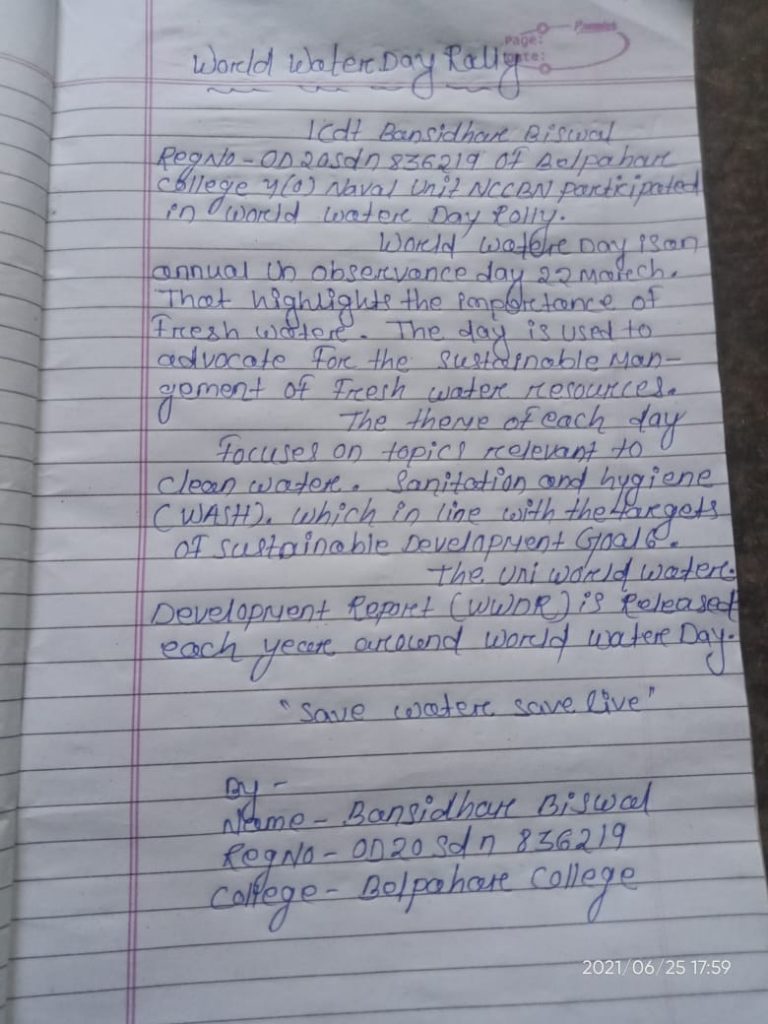 Page:
Date:
World Water Day Rally
1 Cdt Bansidhar Biswal
Reg No - OD20SDN 836219 Of Belpahar
College 4(O) Naval Unit NCC BN participated
in World Water Day Rolly.
World Water Day is an
annual Un observance day 22 March.
That highlights the importance of
Fresh water. The day is used to
advocate for the sustainable Man-
gement of Fresh water resources.
The theme of each day
Focuses on topics relevant to
clean water. Sanitation and hygiene
(WASH). which in line with the targets
of sustainable Development Goals.
The Uni World Water
Development Report (WWDR) is Released
each year around World Water Day.
"Save water save live"
By -
Name - Bansidhar Biswal
Reg No - OD20 SDN 836219
College - Belpahar College
2021/06/25 17:59